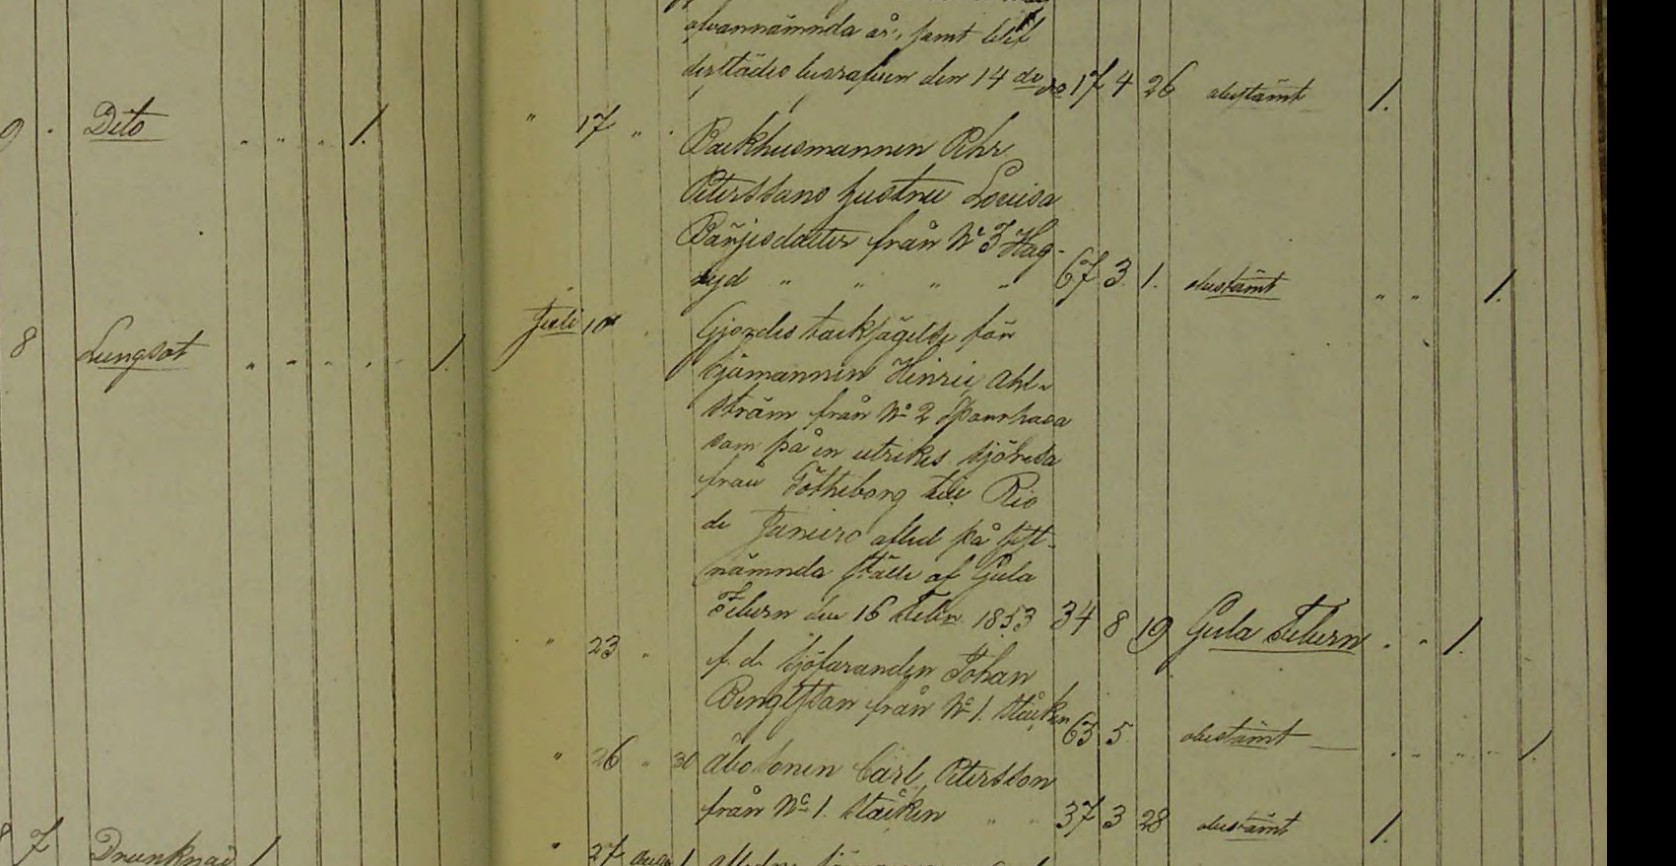 ofvannämnda år, samt blef
derstädes begrafven den 14 do do 17 4 26 obestämt 1.
9 Dito 1.
" 17 "
Backhusmannen Pehr
Peterssons hustru Lovisa
Börjesdotter från No 3 Hag-
ryd " " " " 67 3 1. obestämt " " 1.
8 Lungsot 1.
Juli 10 Gjordes tacksägelse för
sjömannen Hinric Ahl-
ström från No 2
som på en utrikes sjöresa
från Götheborg till Rio
de Janeiro afled på sist-
nämnda ställe af Gula
Febern den 16 Febr. 1853 34 8 19 Gula Febern 1.
" 23 " f. d. sjöfaranden Johan
Bengtsson från No 1. Stacken 63 5 obestämt 1
" 26 " 30 Åbosonen Carl Petersson
från No 1. Stacken " " 37 3 28 obestämt 1.
7 Drunknad 1
" 27